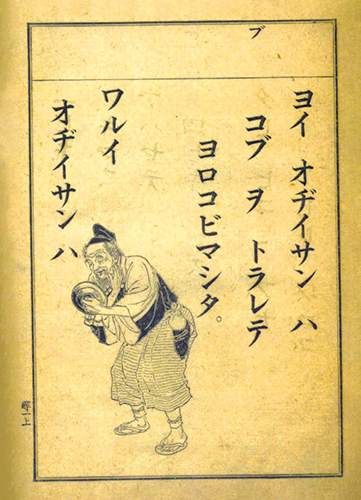 ブ
ヨイ オヂイサン ハ
コブ ヲ トラレテ
ヨロコビマシタ。
ワルイ
オヂイサン ハ